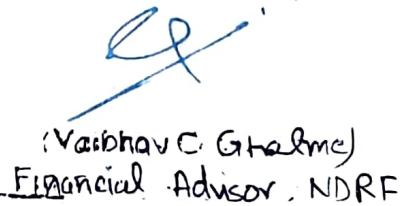 (Vaibhav C. Ghalme)
Financial Advisor, NDRF